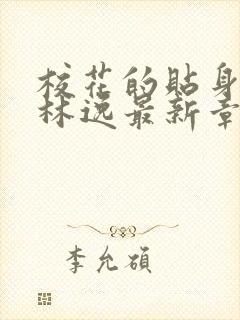 校花的贴身
林逸最新章
李允硕